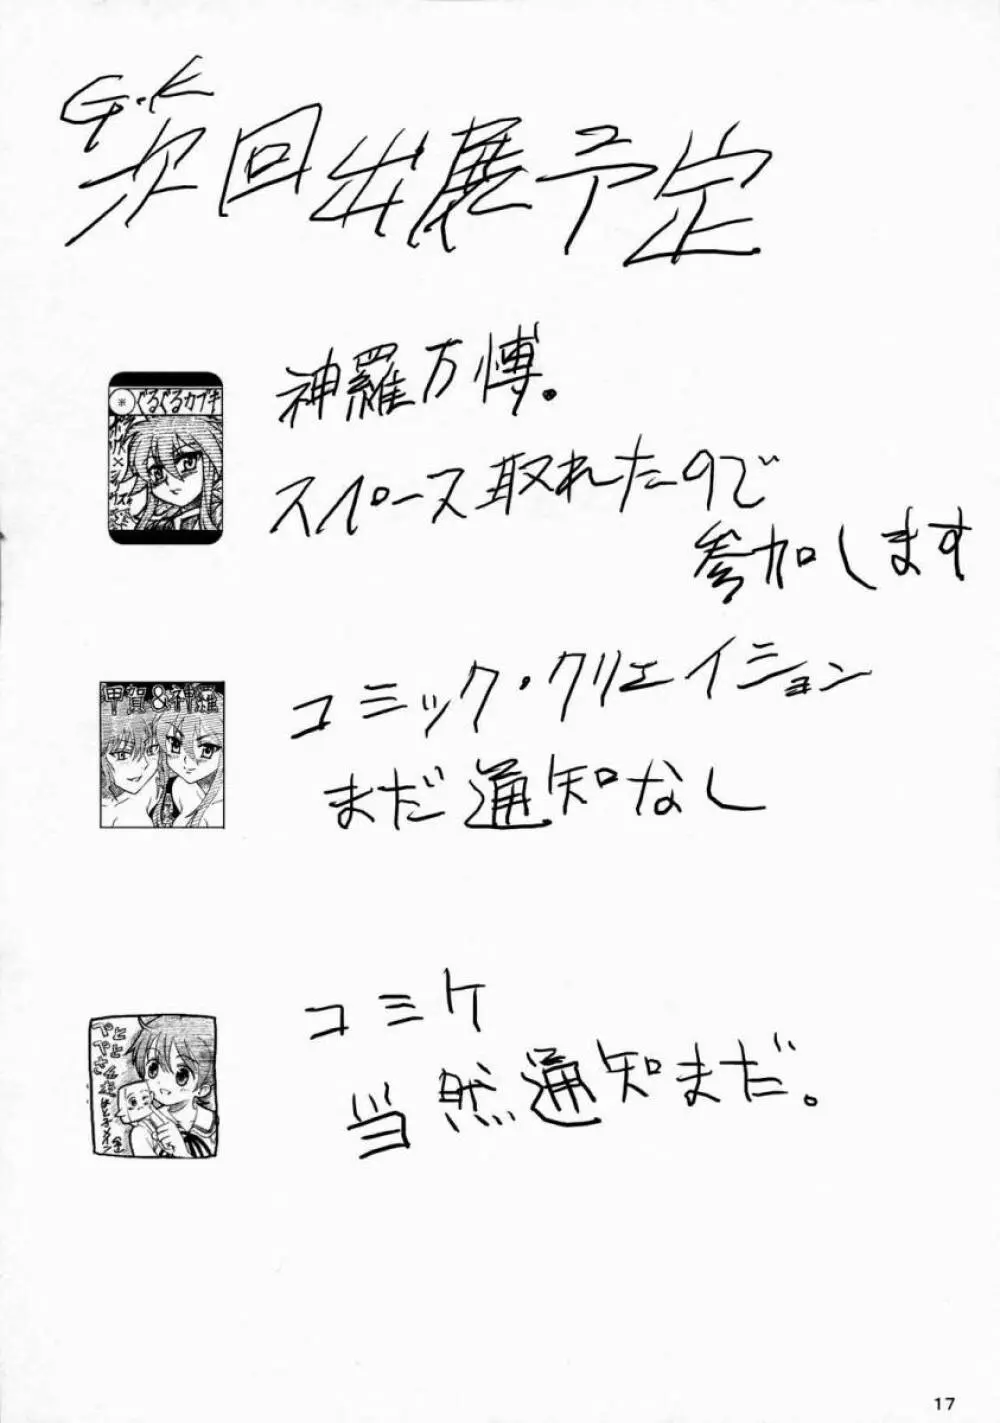 G.K
次回出展予定
神羅万博。
ぐるぐるカブキ
スペース取れたので
参加します
コミック・クリエイション
甲賀&神羅
まだ通知なし
コミケ
当然通知まだ。
17